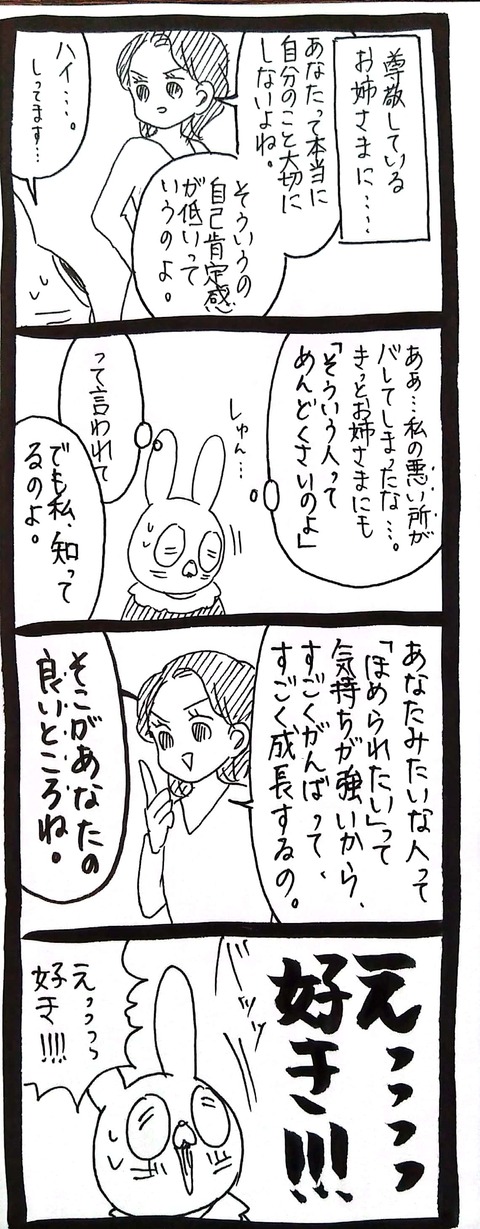 尊敬している
お姉さまに‥‥
あなたって本当に
自分のこと大切に
しないよね。
そういうの
自己肯定感
が低いって
いうのよ。
ハイ‥‥。
しってます‥‥
あぁ‥‥私の悪い所が
バレてしまったな‥‥。
きっとお姉さまにも
「そういう人って
めんどくさいのよ」
しゅん‥‥
って言われて
でも私、知って
るのよ。
あなたみたいな人って
「ほめられたい」って
気持ちが強いから、
すごくがんばって、
すごく成長するの。
そこがあなたの
良いところね。
えっっっっ
好き!!!
ドッ
えっっっっ
好き!!!!